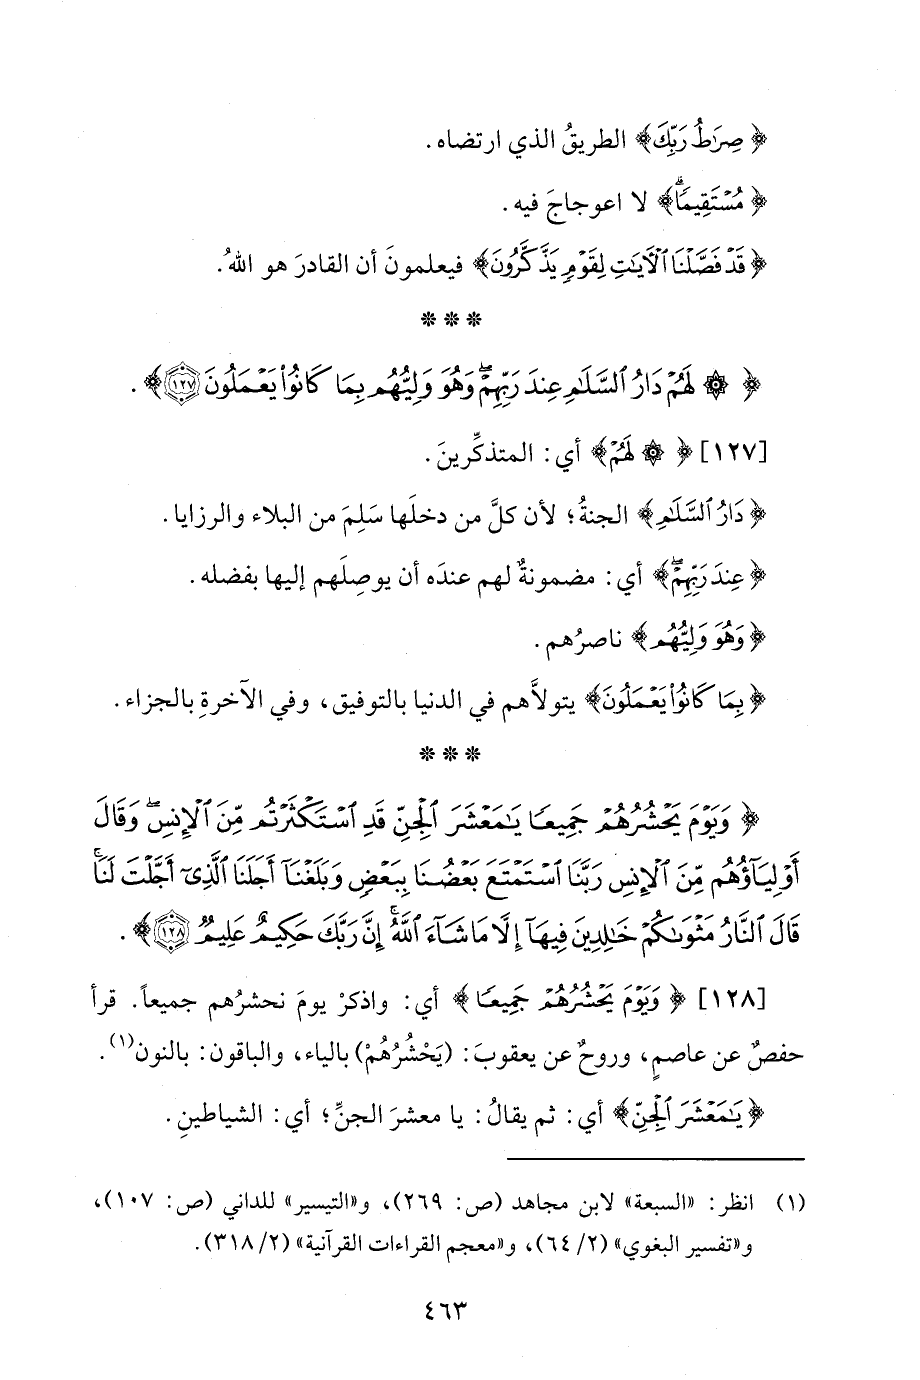 ﴿ صِرَٰطُ رَبِّكَ﴾ الطريقُ الذي ارتضاه.
﴿ مُسْتَقِيمًاۗ﴾ لا اعوجاجَ فيه.
﴿ قَدْ فَصَّلْنَا ٱلْآيَٰتِ لِقَوْمٍ يَذَّكَّرُونَ﴾ فيعلمونَ أن القادرَ هو اللهُ.
* * *
﴿ ۞ لَهُمْ دَارُ ٱلسَّلَٰمِ عِندَ رَبِّهِمْۖ وَهُوَ وَلِيُّهُم بِمَا كَانُوا۟ يَعْمَلُونَ ١٢٧﴾.
[١٢٧] ﴿ ۞ لَهُمْ﴾ أي: المتذكِّرينَ.
﴿ دَارُ ٱلسَّلَٰمِ﴾ الجنةُ؛ لأن كلَّ من دخلَها سَلِمَ من البلاء والرزايا.
﴿ عِندَ رَبِّهِمْۖ﴾ أي: مضمونةٌ لهم عندَه أن يوصِلَهم إليها بفضله.
﴿ وَهُوَ وَلِيُّهُم﴾ ناصرُهم.
﴿ بِمَا كَانُوا۟ يَعْمَلُونَ﴾ يتولاَّهم في الدنيا بالتوفيق، وفي الآخرةِ بالجزاء.
* * *
﴿ وَيَوْمَ يَحْشُرُهُمْ جَمِيعًا يَٰمَعْشَرَ ٱلْجِنِّ قَدِ ٱسْتَكْثَرْتُم مِّنَ ٱلْإِنسِۖ وَقَالَ
أَوْلِيَآؤُهُم مِّنَ ٱلْإِنسِ رَبَّنَا ٱسْتَمْتَعَ بَعْضُنَا بِبَعْضٍ وَبَلَغْنَآ أَجَلَنَا ٱلَّذِىٓ أَجَّلْتَ لَنَاۚ
قَالَ ٱلنَّارُ مَثْوَىٰكُمْ خَٰلِدِينَ فِيهَآ إِلَّا مَا شَآءَ ٱللَّهُۚ إِنَّ رَبَّكَ حَكِيمٌ عَلِيمٌ ١٢٨﴾.
[١٢٨] ﴿ وَيَوْمَ يَحْشُرُهُمْ جَمِيعًا﴾ أي: واذكرْ يومَ نحشرُهم جميعاً. قرأ
حفصٌ عن عاصمٍ، وروحٌ عن يعقوبَ: (يَحْشُرُهُمْ) بالياء، والباقون: بالنون(١).
﴿ يَٰمَعْشَرَ ٱلْجِنِّ﴾ أي: ثم يقالُ: يا معشرَ الجنِّ؛ أي: الشياطينِ.
(١) انظر: «السبعة» لابن مجاهد (ص: ٢٦٩)، و«التيسير» للداني (ص: ١٠٧)،
و«تفسير البغوي» (٢/ ٦٤)، و«معجم القراءات القرآنية» (٢/ ٣١٨).
٤٦٣